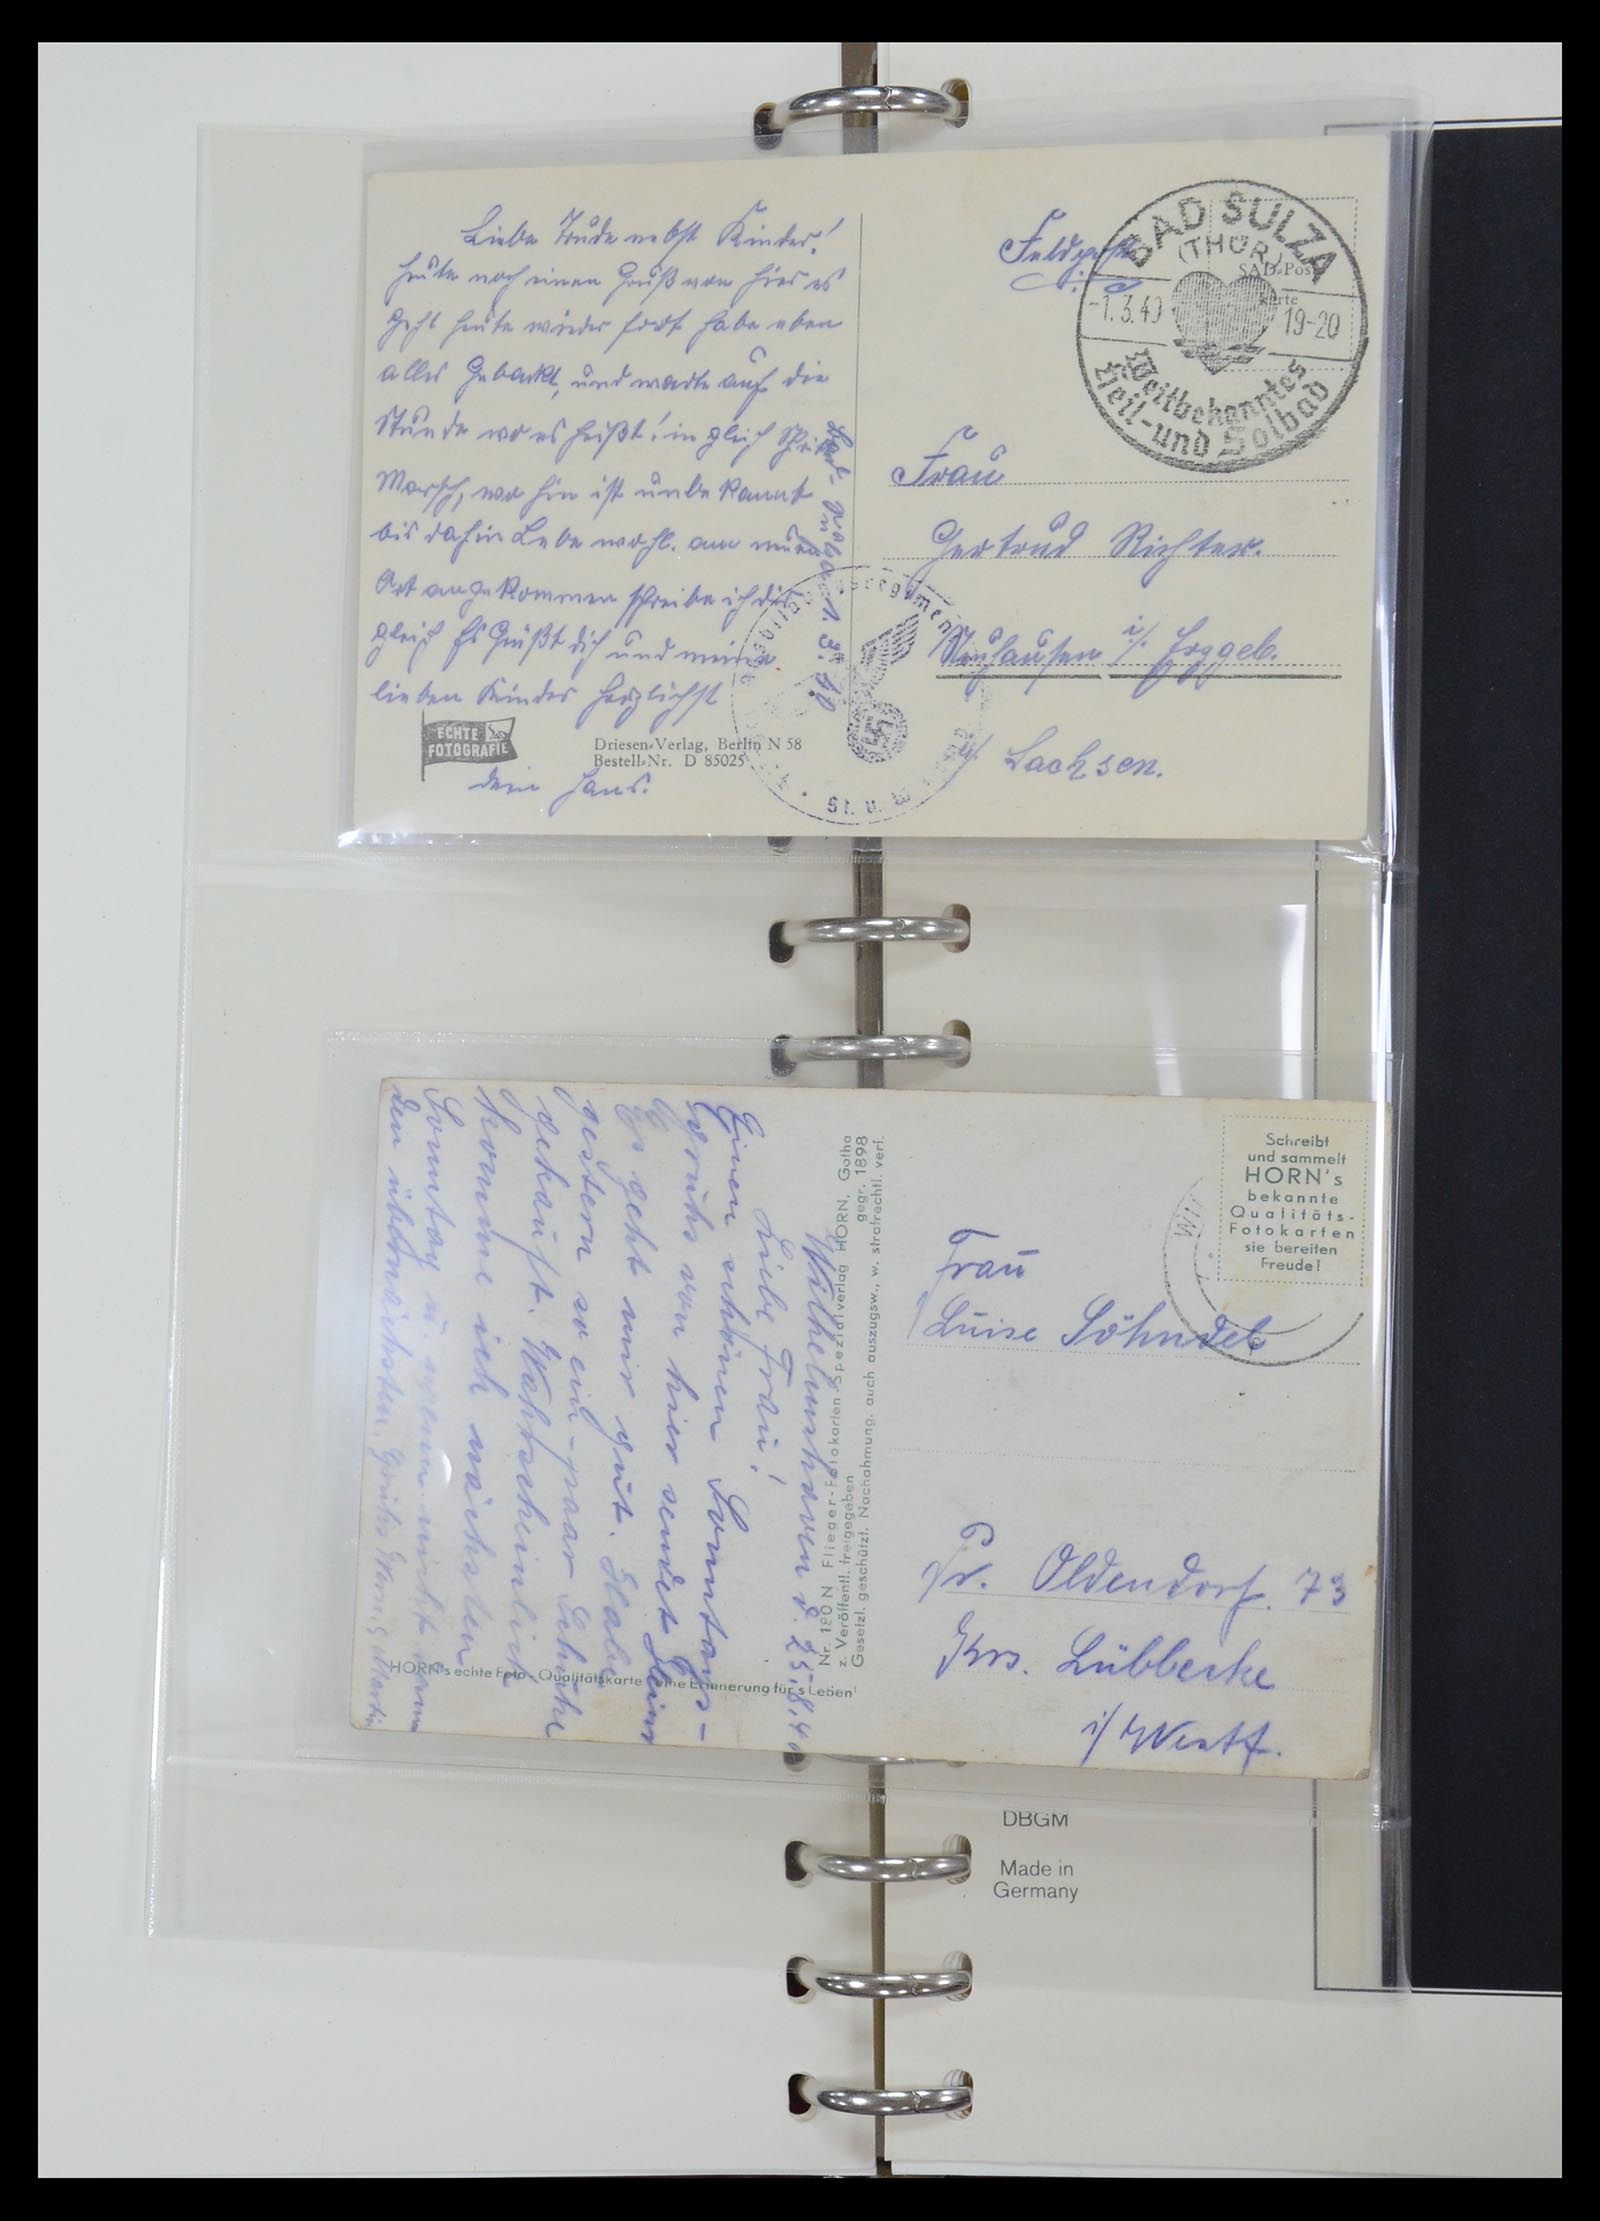 Liebe Trude nebst Kinder!
Heute noch einen Gruß von hier es
geht heute wieder fort habe eben
alles Gebackt, und warte auf die
Stunde wo es heißt! im gleich Schritt
Marsch, wo hin ist unbekannt
bis dahin Lebe wohl. am neuen
Ort angekommen schreibe ich dir
gleich Es Grüßt dich und meine
lieben Kinder herzlichst
dein Hans.
Bad-Sulza 1.3.40
ECHTE
FOTOGRAFIE
Driesen-Verlag, Berlin N 58
Bestell-Nr. D 85025
Feldpost
BAD SULZA
(THÜR)
-1.3.40
19-20
Weitbekanntes
Heil- und Solbad
SAD-Post
karte
Frau
Gertrud Richter.
Neuhausen i/. Erzgeb.
i/ Sachsen.
Wilhelmshaven d. 25.8.40
Liebe Frau!
Einen schönen Sonntags-
grühs von hier sendet Heini
Es geht mir gut. Habe
gestern so ein-paar Schühe
gekauft. Wahrscheinlich
komme ich nächsten
Sonntag u. wenn nicht dann
den übernächsten.
Nr. 180 N Flieger-Fotokarten-Spezialverlag HORN, Gotha
z. Veröffentl. freigegeben gegr. 1898
Gesetzl. geschützt. Nachahmung, auch auszugsw., w. strafrechtl. verf.
HORN's echte Foto-Qualitätskarte eine Erinnerung für's Leben!
Schreibt
und sammelt
HORN's
bekannte
Qualitäts-
Fotokarten
sie bereiten
Freude!
Frau
Luise Söhndel
Pr. Oldendorf. 73
Krs. Lübbecke
i/ Westf.
DBGM
Made in
Germany